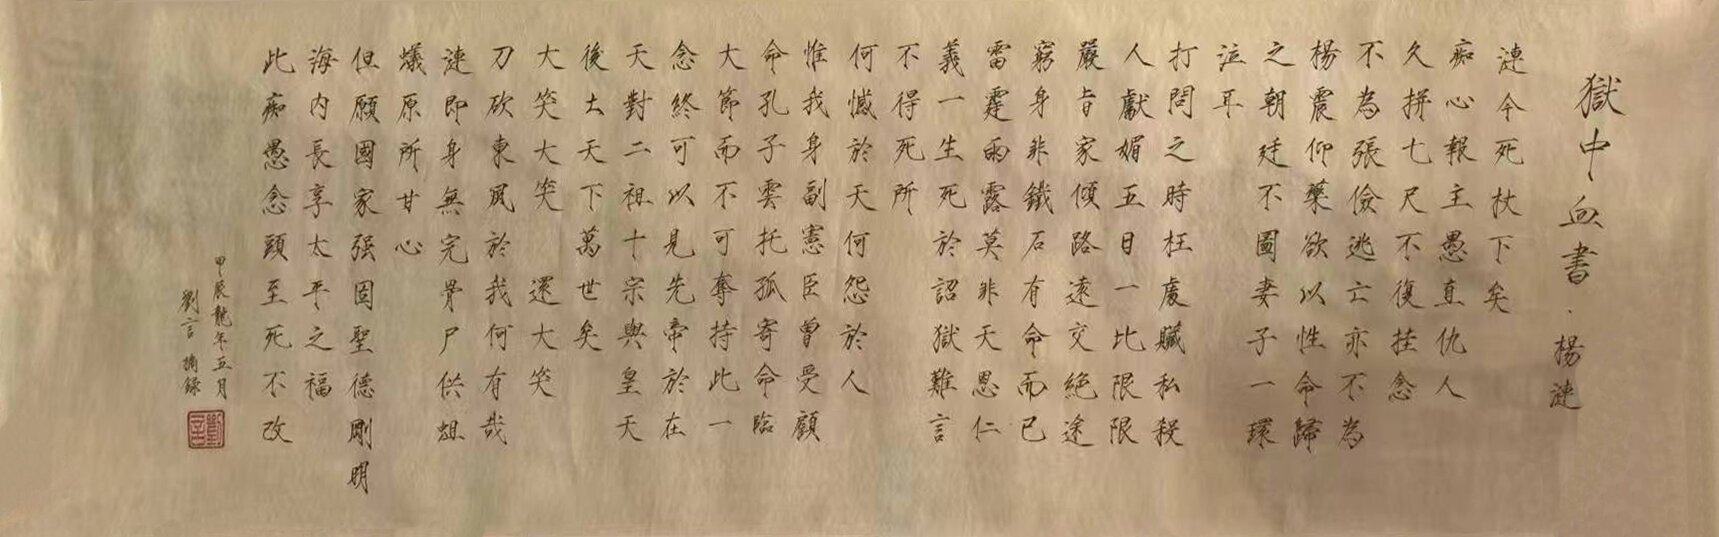 獄中血書·楊漣
漣今死杖下矣
痴心報主愚直仇人
久拼七尺不復挂念
不為張儉逃亡亦不為
楊震仰藥欲以性命歸
之朝廷不圖妻子一環
泣耳
打問之時枉處贓私殺
人獻媚五日一比限限
嚴旨家傾路遠交絕途
窮身非鐵石有命而已
雷霆雨露莫非天恩仁
義一生死於詔獄難言
不得死所
何憾於天何怨於人
惟我身副憲臣曾受顧
命孔子雲托孤寄命臨
大節而不可奪持此一
念終可以見先帝於在
天對二祖十宗與皇天
後土天下萬世矣
大笑大笑 還大笑
刀砍東風於我何有哉
漣即身無完骨尸供蛆
蟻原所甘心
但願國家强固聖德剛明
海內長享太平之福
此痴愚念頭至死不改
甲辰龍年五月
劉言 摘錄
劉言